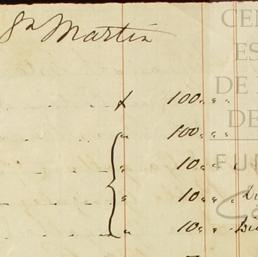 Sn Martin
100 " "
100 " "
10 " "
10 " "
10 " "
CE
ES
DE
DE
FUN